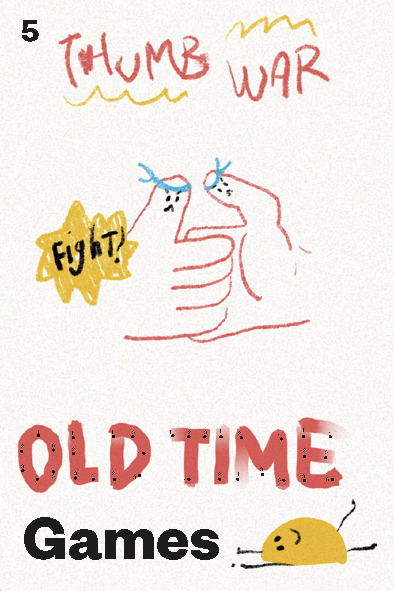 5
THUMB WAR
FighT!
OLD TIME
Games